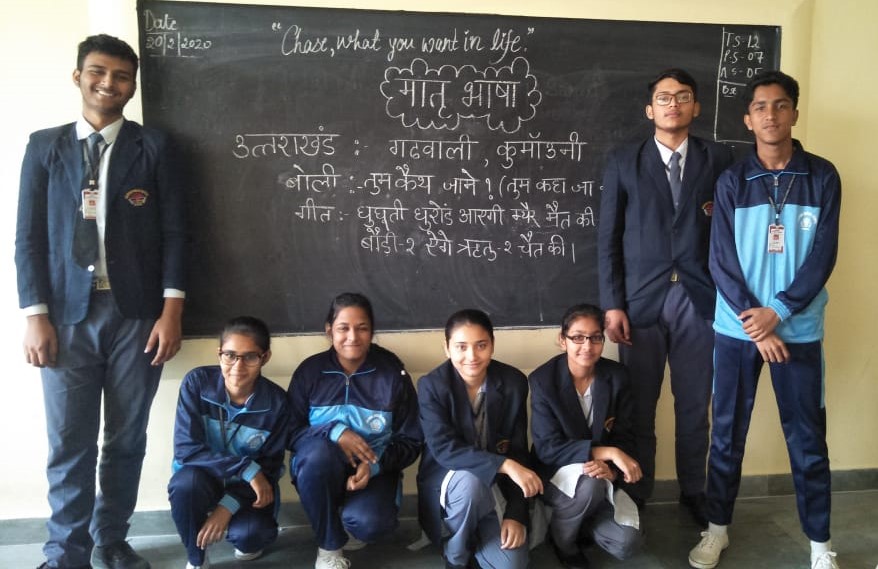 Date
20/2/2020
"Chase, what you want in life."
T.S-12
P.S-07
मातृ भाषा
उत्तराखंड :- गढवाली , कुमॉउनी
बोली :- तुम कैथ जाने ? (तुम कहा जा
गीत :- घुघुती घुरोंड आरगी म्यैर मैत की
बौड़ी-२ ऐगे ऋतु-२ चैत की।